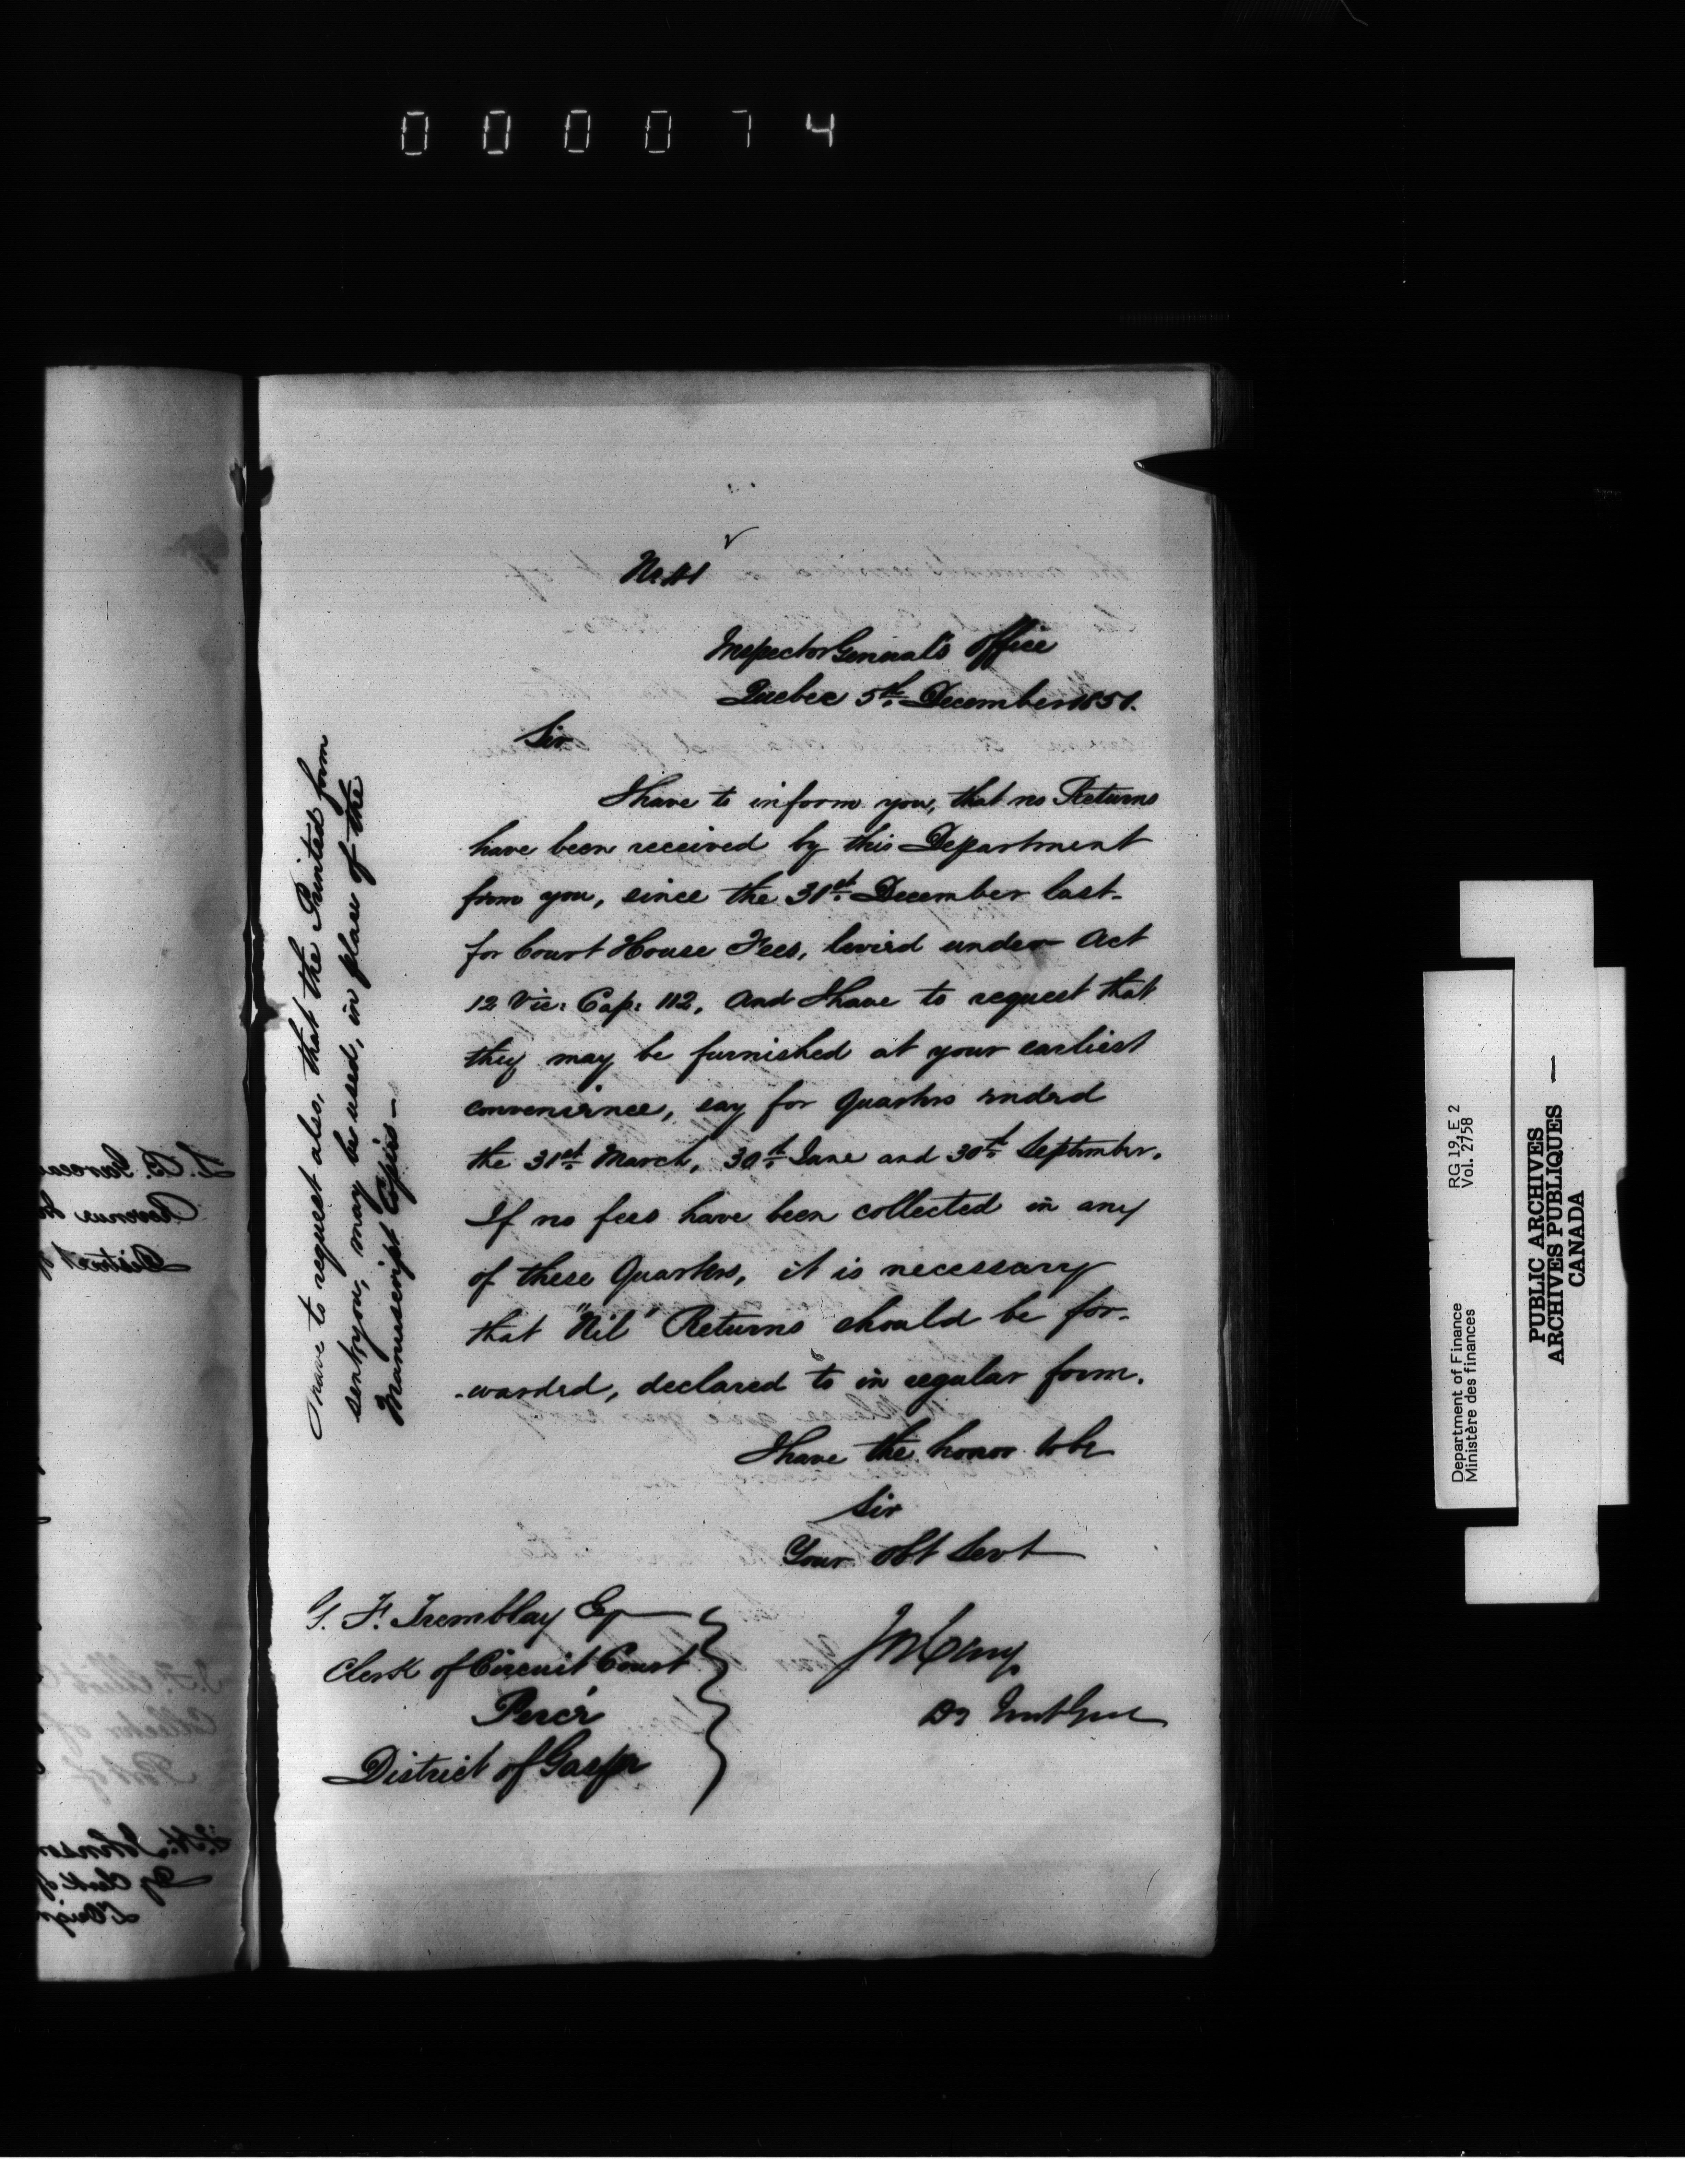 000074
Inspector General's Office
Quebec 5th December 1851.
Sir
I have to inform you, that no Returns
have been received by this Department
from you, since the 31st December last
for Court House Fees, levied under Act
12 Vic: Cap: 112, And I have to request that
they may be furnished at your earliest
convenience, say for Quarters ended
the 31st March, 30th June and 30th September.
If no fees have been collected in any
of these Quarters, it is necessary
that "Nil" Returns should be for-
-warded, declared to in regular form.
I have the honor to be
Sir
Your obt Servt
Dy Inst Genl
G. F. Tremblay Esq
Clerk of Circuit Court
Percé
District of Gaspé
I have to request also, that the Printed form
sent you, may be used, in place of the
Manuscript Copies -
RG 19, E 2
Vol. 2758
Department of Finance
Ministère des finances
PUBLIC ARCHIVES
ARCHIVES PUBLIQUES
CANADA